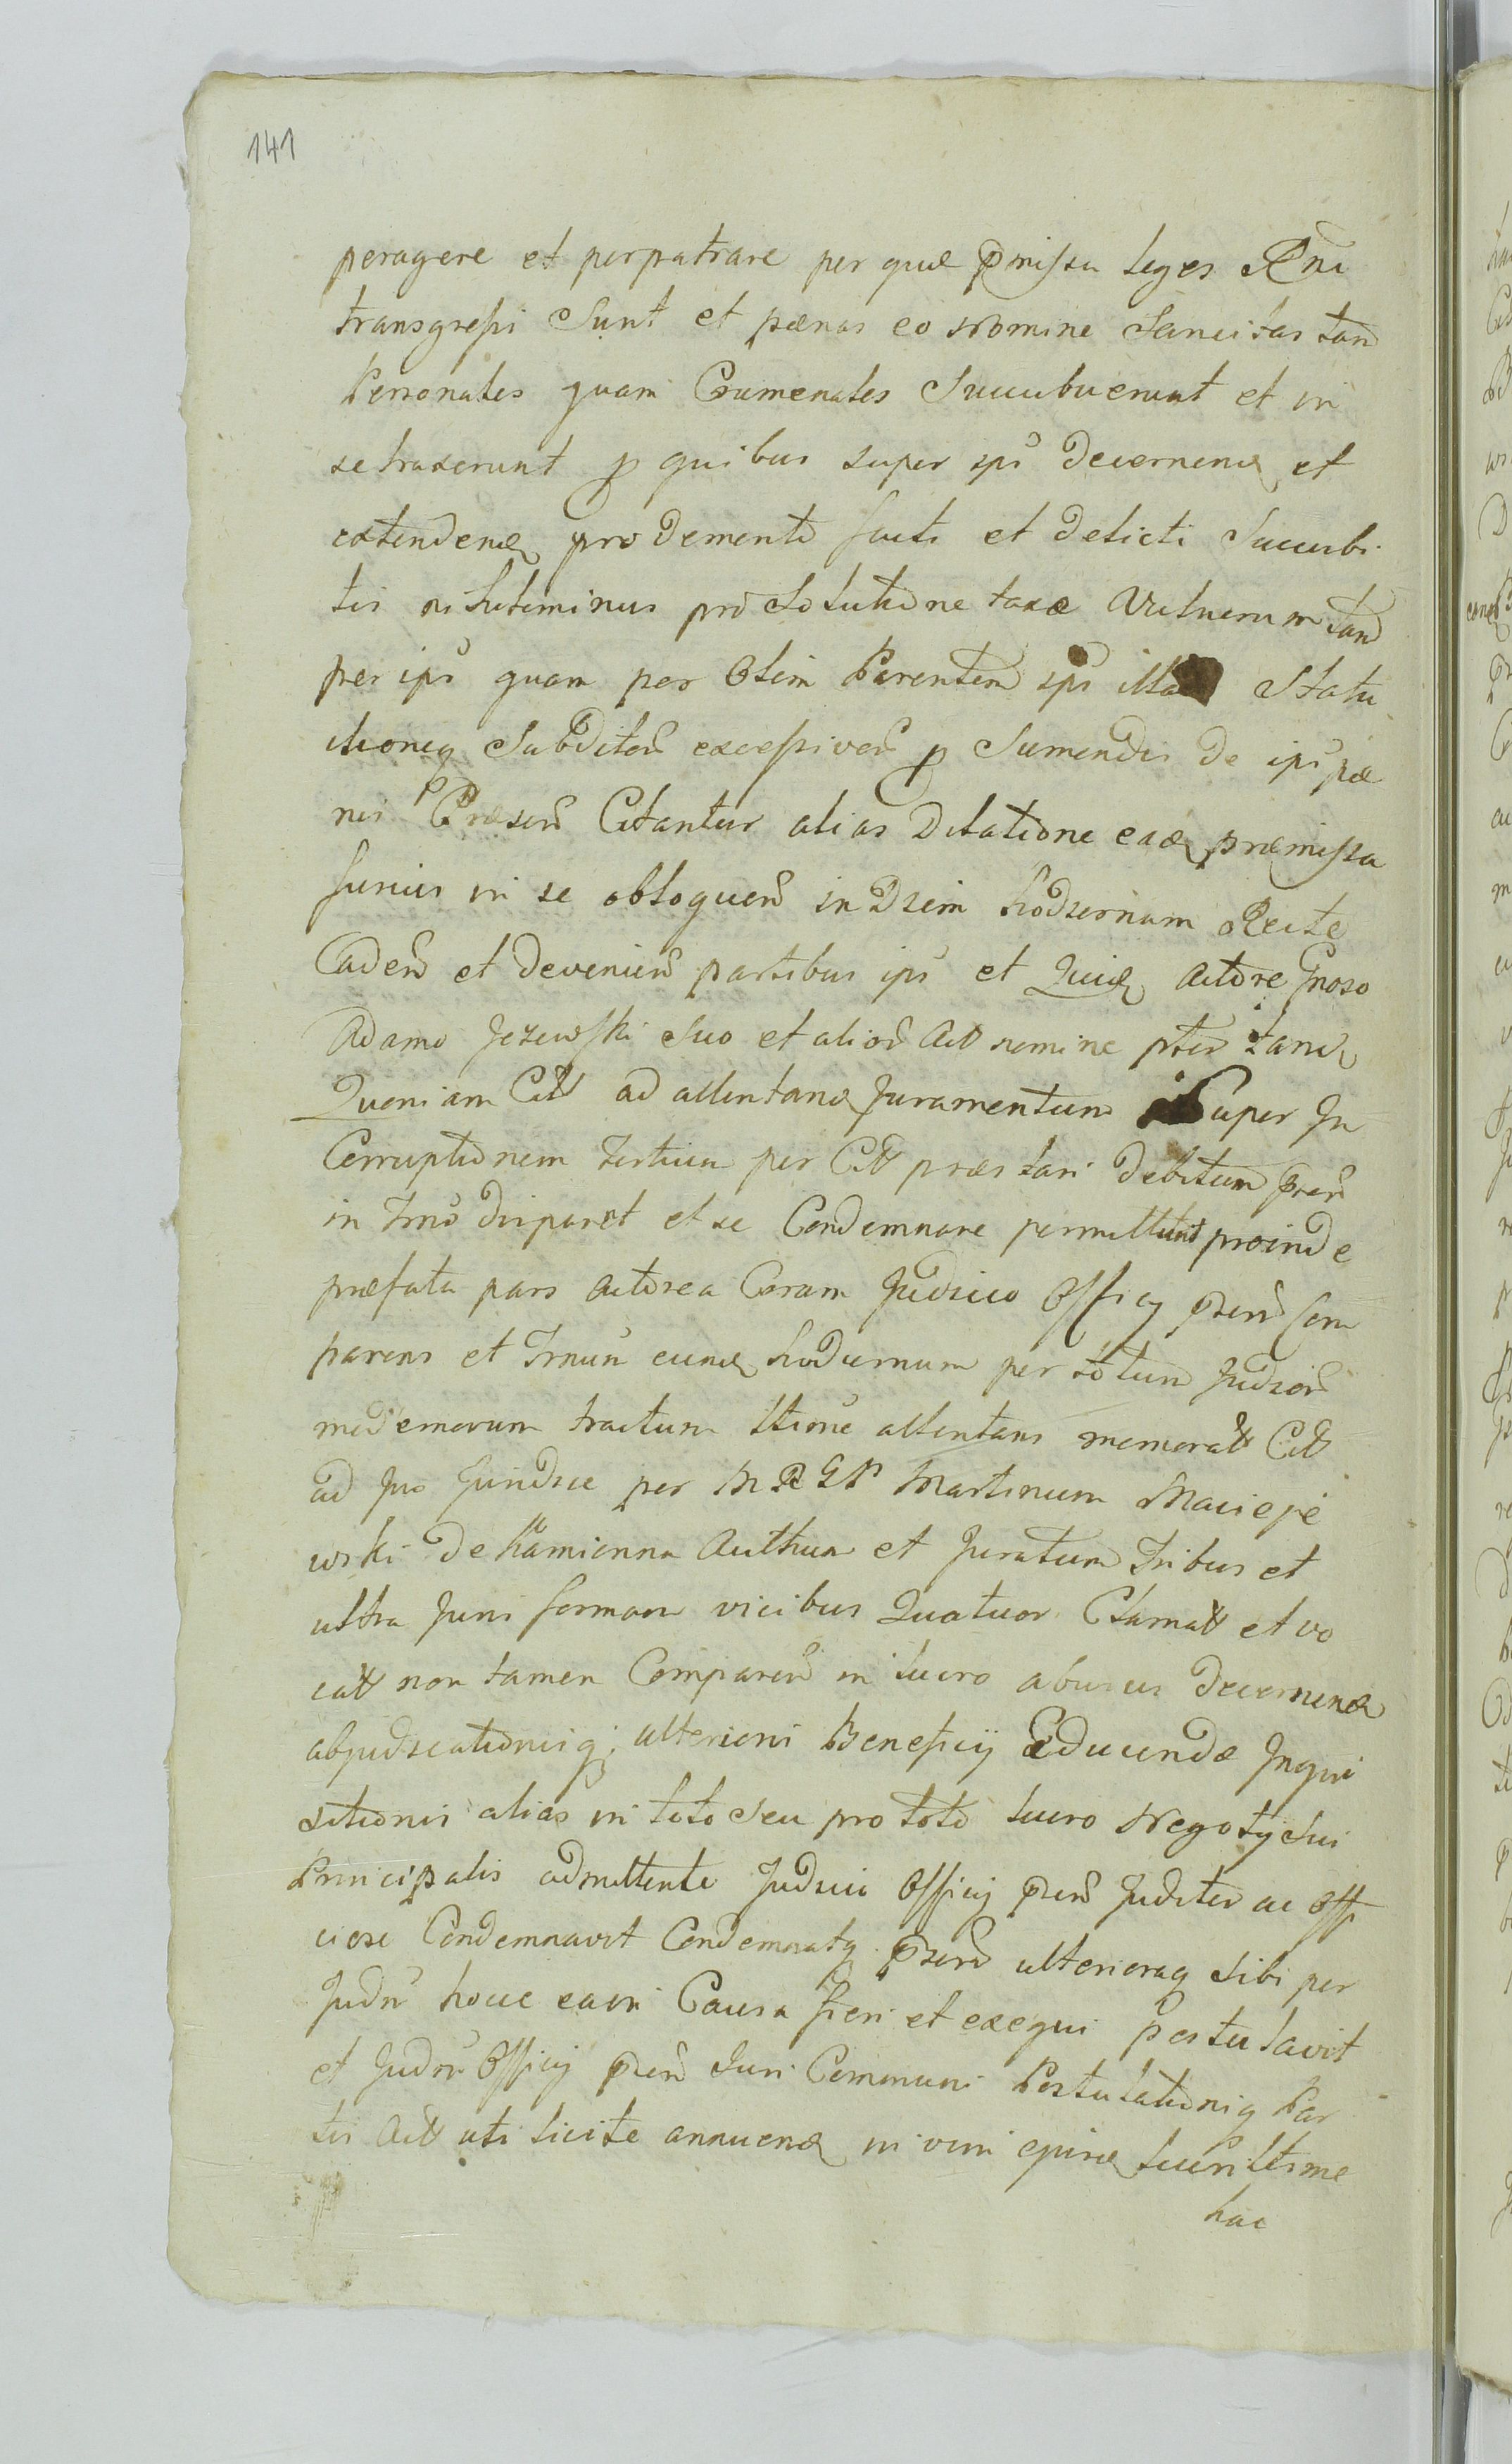 141
peragere et perpatrare per quæ pmissa leges Rni
transgressi Sunt et pænas eo Nomine Sancitas tam
Personales quam Crumenales Succubuerunt et in
se traxerunt p quibus super ips decernend et
extendend pro demento facti et delicti Succubi
tis nihilominus pro Solutione taxæ Vulnerum tam
per ips quam per Olim Parentem ips illa Statu
itioneq Subditor excessivor p Sumendis de ips pæ
nis Præsen Citantur alias Dilatione ead præmissa
furius in se obloquen in Diem hodiernum Recte
Caden et devenien partibus ips et Quid Actore Gnoso
Adamo Jezewski Suo et alior Act nomine pter tand
Quoniam Citt ad attentand Juramentum Super In
Corruptionem testium per Citt præstari debitum pren
in Trno disparet et se Condemnare permittunt proinde
præfata pars Actorea Coram Judicio Officij psen Com
parens et Trnum eund hodiernum per totum Judicior
modernorum tractum lttime attentans memoratt Citt
ad Jus Juridice per MRGP Martinum Macieje
wski de Kamionna Authen et Juratum Tribus et
ultra Juris formam vicibus Quatuor Clamatt et vo
catt non tamen Comparen in lucro abusus decernend
abjudicationisq; ulterioris Beneficij Educendæ Inqui
sitionis alias in toto Seu pro toto lucro Negotij Sui
Principalis admittente Judicio Officij psen Juditer ac Offi
ciose Condemnavit Condemnatq psen ulterioraq Sibi per
Judm hocce eavi Causa fieri et exequi Postulavit
et Judm Officij psen Juri Communi Postulationiq Par
tis Act uti licite annuend in vim ejusd lucri lttime
hac